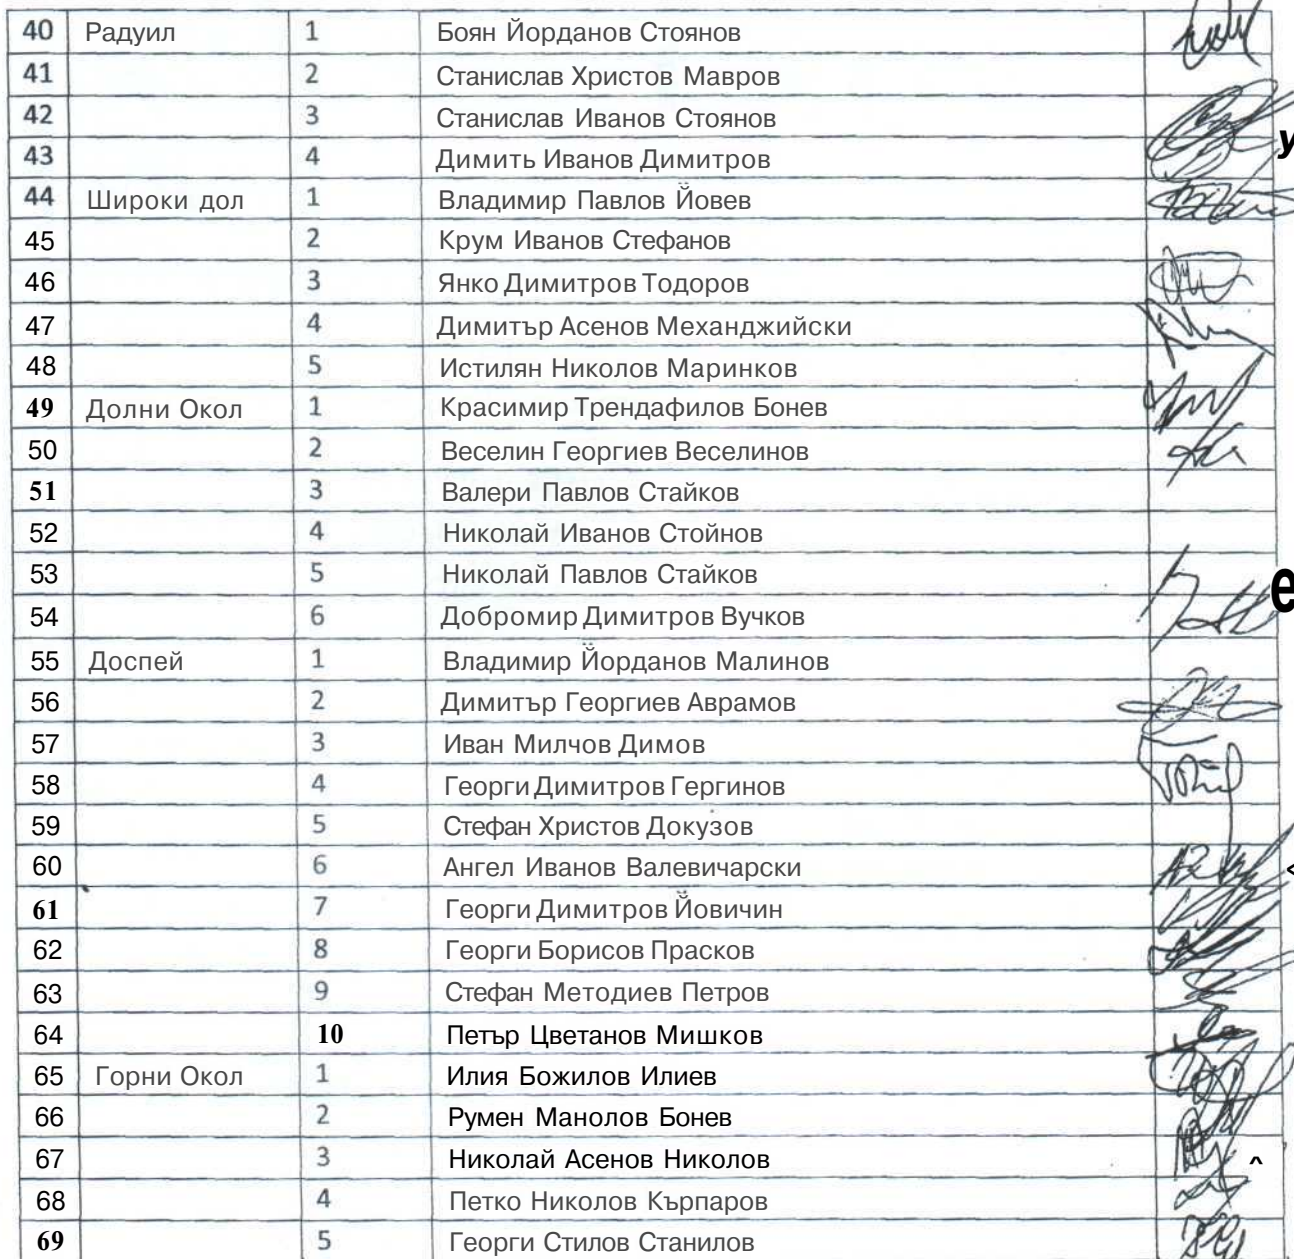 40 Радуил 1 Боян Йорданов Стоянов
41 2 Станислав Христов Мавров
42 3 Станислав Иванов Стоянов
43 4 Димить Иванов Димитров
44 Широки дол 1 Владимир Павлов Йовев
45 2 Крум Иванов Стефанов
46 3 Янко Димитров Тодоров
47 4 Димитър Асенов Механджийски
48 5 Истилян Николов Маринков
49 Долни Окол 1 Красимир Трендафилов Бонев
50 2 Веселин Георгиев Веселинов
51 3 Валери Павлов Стайков
52 4 Николай Иванов Стойнов
53 5 Николай Павлов Стайков
54 6 Добромир Димитров Вучков
55 Доспей 1 Владимир Йорданов Малинов
56 2 Димитър Георгиев Аврамов
57 3 Иван Милчов Димов
58 4 Георги Димитров Гергинов
59 5 Стефан Христов Докузов
60 6 Ангел Иванов Валевичарски
61 7 Георги Димитров Йовичин
62 8 Георги Борисов Прасков
63 9 Стефан Методиев Петров
64 10 Петър Цветанов Мишков
65 Горни Окол 1 Илия Божилов Илиев
66 2 Румен Манолов Бонев
67 3 Николай Асенов Николов ^
68 4 Петко Николов Кърпаров
69 5 Георги Стилов Станилов